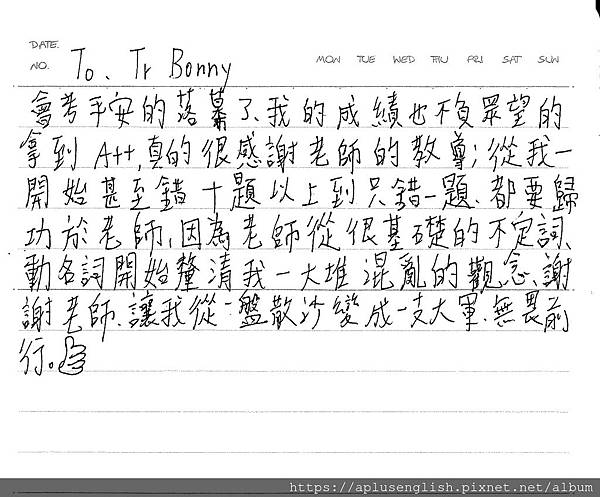 DATE.
NO. To. Tr Bonny MON TUE WED THU FRI SAT SUN
會考平安的落幕了、我的成績也不負眾望的
拿到 A++,真的很感謝老師的教導;從我一
開始甚至錯十題以上到只錯一題、都要歸
功於老師,因為老師從很基礎的不定詞、
動名詞開始釐清我一大堆混亂的觀念、謝
謝老師、讓我從一盤散沙變成一支大軍、無畏前
行。
https://aplusenglish.pixnet.net/album